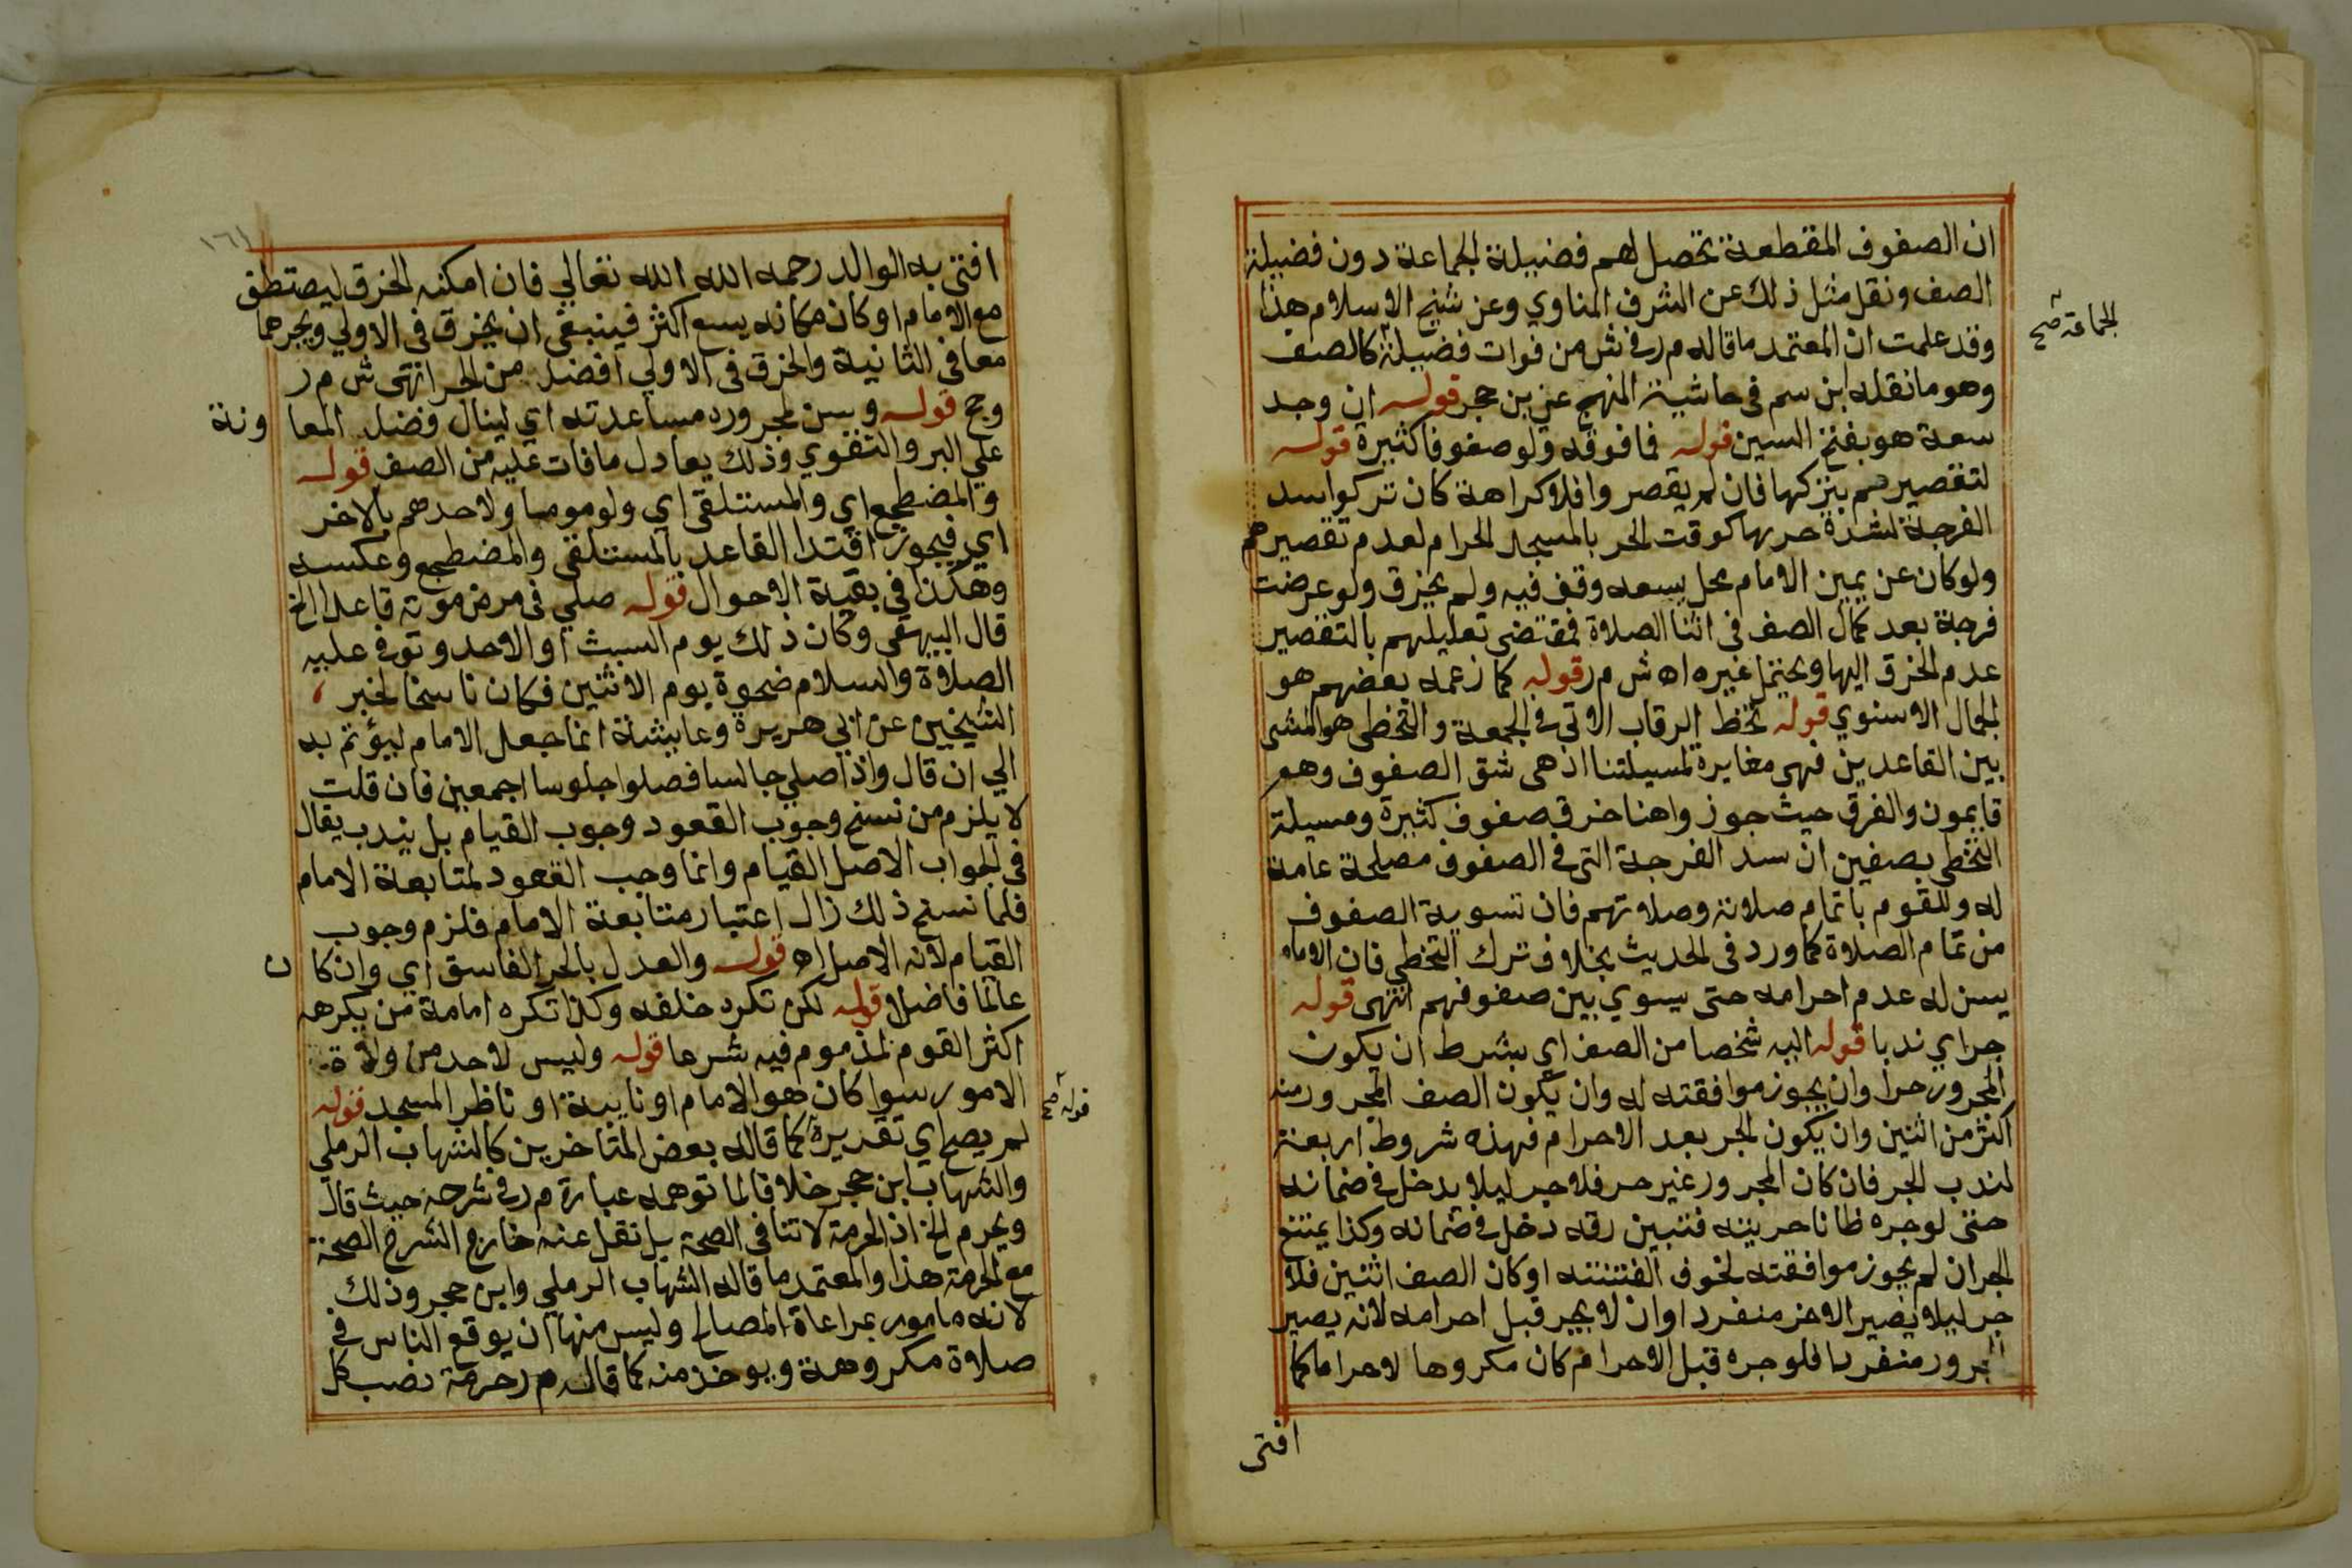 ان الصفوف المقطعة تحصل لهم فضيلة الجماعة دون فضيلة
الصف ونقل مثل ذلك عن الشرف المناوي وعن شيخ الاسلام هذا
الجماعة صح
وقد علمت ان المعتمد ما قاله م ر في ش من فوات فضيلة كالصف
وهو ما نقله ابن سم في حاشية المنهج عن بن حجر قوله ان وجد
سعة هو بفتح السين قوله فما فوقه ولو صفوفا كثيرة قوله
لتقصيرهم بتركها فان لم يقصر وا فلا كراهة كان تركوا سد
الفرجة لشدة حربها كوقت الحر بالمسجد الحرام لعدم تقصيرهم
ولو كان عن يمين الامام محل يسعه وقف فيه ولم يخرق ولو عرضت
فرجة بعد كمال الصف في اثنا الصلاة فمقتضى تعليلهم بالتقصير
عدم الخرق اليها ويحتمل غيره اه ش م ر قوله كما زعمه بعضهم هو
الجمال الاسنوي قوله تخط الرقاب الاتي في الجمعة والتخطى هو المشى
بين القاعدين فهى مغايرة لمسيلتنا اذ هى شق الصفوف وهم
قايمون والفرق حيث جوز واهنا خرق صفوف كثيرة ومسيلة
التخطى بصفين ان سد الفرجة التى في الصفوف مصلحة عامة
له وللقوم باتمام صلاته وصلاتهم فان تسوية الصفوف
من تمام الصلاة كما ورد فى الحديث بخلاف ترك التخطي فان الامام
يسن له عدم احرامه حتى يسوي بين صفوفهم انتهى قوله
جر اي ند با قوله اليه شخصا من الصف اي بشرط ان يكون
المجرور حرا وان يجوز موافقته له وان يكون الصف المجرور منه
اكثر من اثنين وان يكون الجر بعد الاحرام فهذه شروط اربعة
لندب الجر فان كان المجرور غير حر فلا جر ليلا يدخل في ضمانه
حتى لو جره ظانا حريته فتبين رقه دخل في ضمانه وكذا يمتنع
الجر ان لم يجوز موافقته لخوف الفتنته او كان الصف اثنين فلا
جر ليلا يصير الاخر منفردا وان لا يجر قبل احرامه لانه يصير
المجرور منفردا فلو جره قبل الاحرام كان مكروها لا حراما كما
افتى
١٦١
افتى به الوالد رحمه الله الله تعالي فان امكنه الخرق ليصتطف
مع الامام او كان مكانه يسع اكثر فينبغى ان يخرق فى الاولي ويجرهما
معا فى الثانية والخرق فى الاولي افضل من الجر انتهى ش م ر
وحج قوله ويسن لمجرور د مساعدته اي لينال فضل المعا ونة
علي البر والتقوي وذلك يعادل ما فات عليه من الصف قوله
والمضطجع اي والمستلقى اي ولو موميا ولاحدهم بالاخر
اي فيجوز اقتدا القاعد بالمستلقى والمضطجع وعكسه
وهكذا في بقية الاحوال قوله صلي فى مرض موته قاعدا الخ
قال البيهقى وكان ذلك يوم السبت او الاحد وتوفي عليه
الصلاة والسلام ضحوة يوم الاثنين فكان ناسخا لخبر
الشيخين عن ابي هريرة وعايشة انما جعل الامام ليؤتم به
الي ان قال واذا صلي جالسا فصلوا جلوسا اجمعين فان قلت
لا يلزم من نسخ وجوب القعود وجوب القيام بل يندب يقال
فى الجواب الاصل القيام وانما وجب القعود لمتابعة الامام
فلما نسخ ذلك زال اعتبار متابعة الامام فلزم وجوب
القيام لانه الاصل اه قوله والعدل بالحر الفاسق اي وان كا ن
عالما فاضلا قوله لكن تكره خلفه وكذا تكره امامة من يكرهه
اكثر القوم لمذموم فيه شرعا قوله وليس لاحد من ولاة
الامور سوا كان هو الامام او نايبه او ناظر المسجد قوله
قوله صح
لم يصح اي تقريره كما قاله بعض المتاخرين كالشهاب الرملي
والشهاب ابن حجر خلافا لما توهمه عبارة م ر في شرحه حيث قال
ويحرم الخ اذ الحرمة لا تنا فى الصحة بل نقل عنه خارج الشرح الصحة
مع الحرمة هذا والمعتمد ما قاله الشهاب الرملي وابن حجر وذلك
لانه مامور بمراعاة المصالح وليس منها ان يوقع الناس في
صلاة مكروهة ويوخذ منه كما قاله م ر حرمة نصب كل